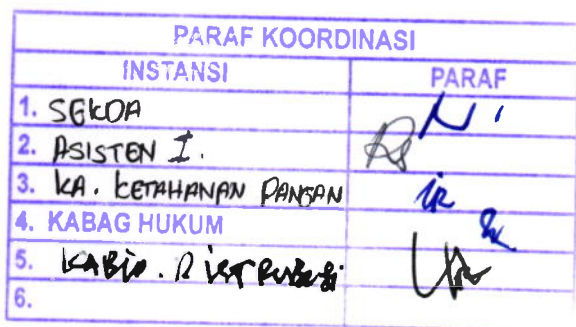 PARAF KOORDINASI
INSTANSI PARAF
1. SEKDA
2. ASISTEN I.
3. KA. KETAHANAN PANGAN
4. KABAG HUKUM
5. KABID. DISTRIBUSI
6.